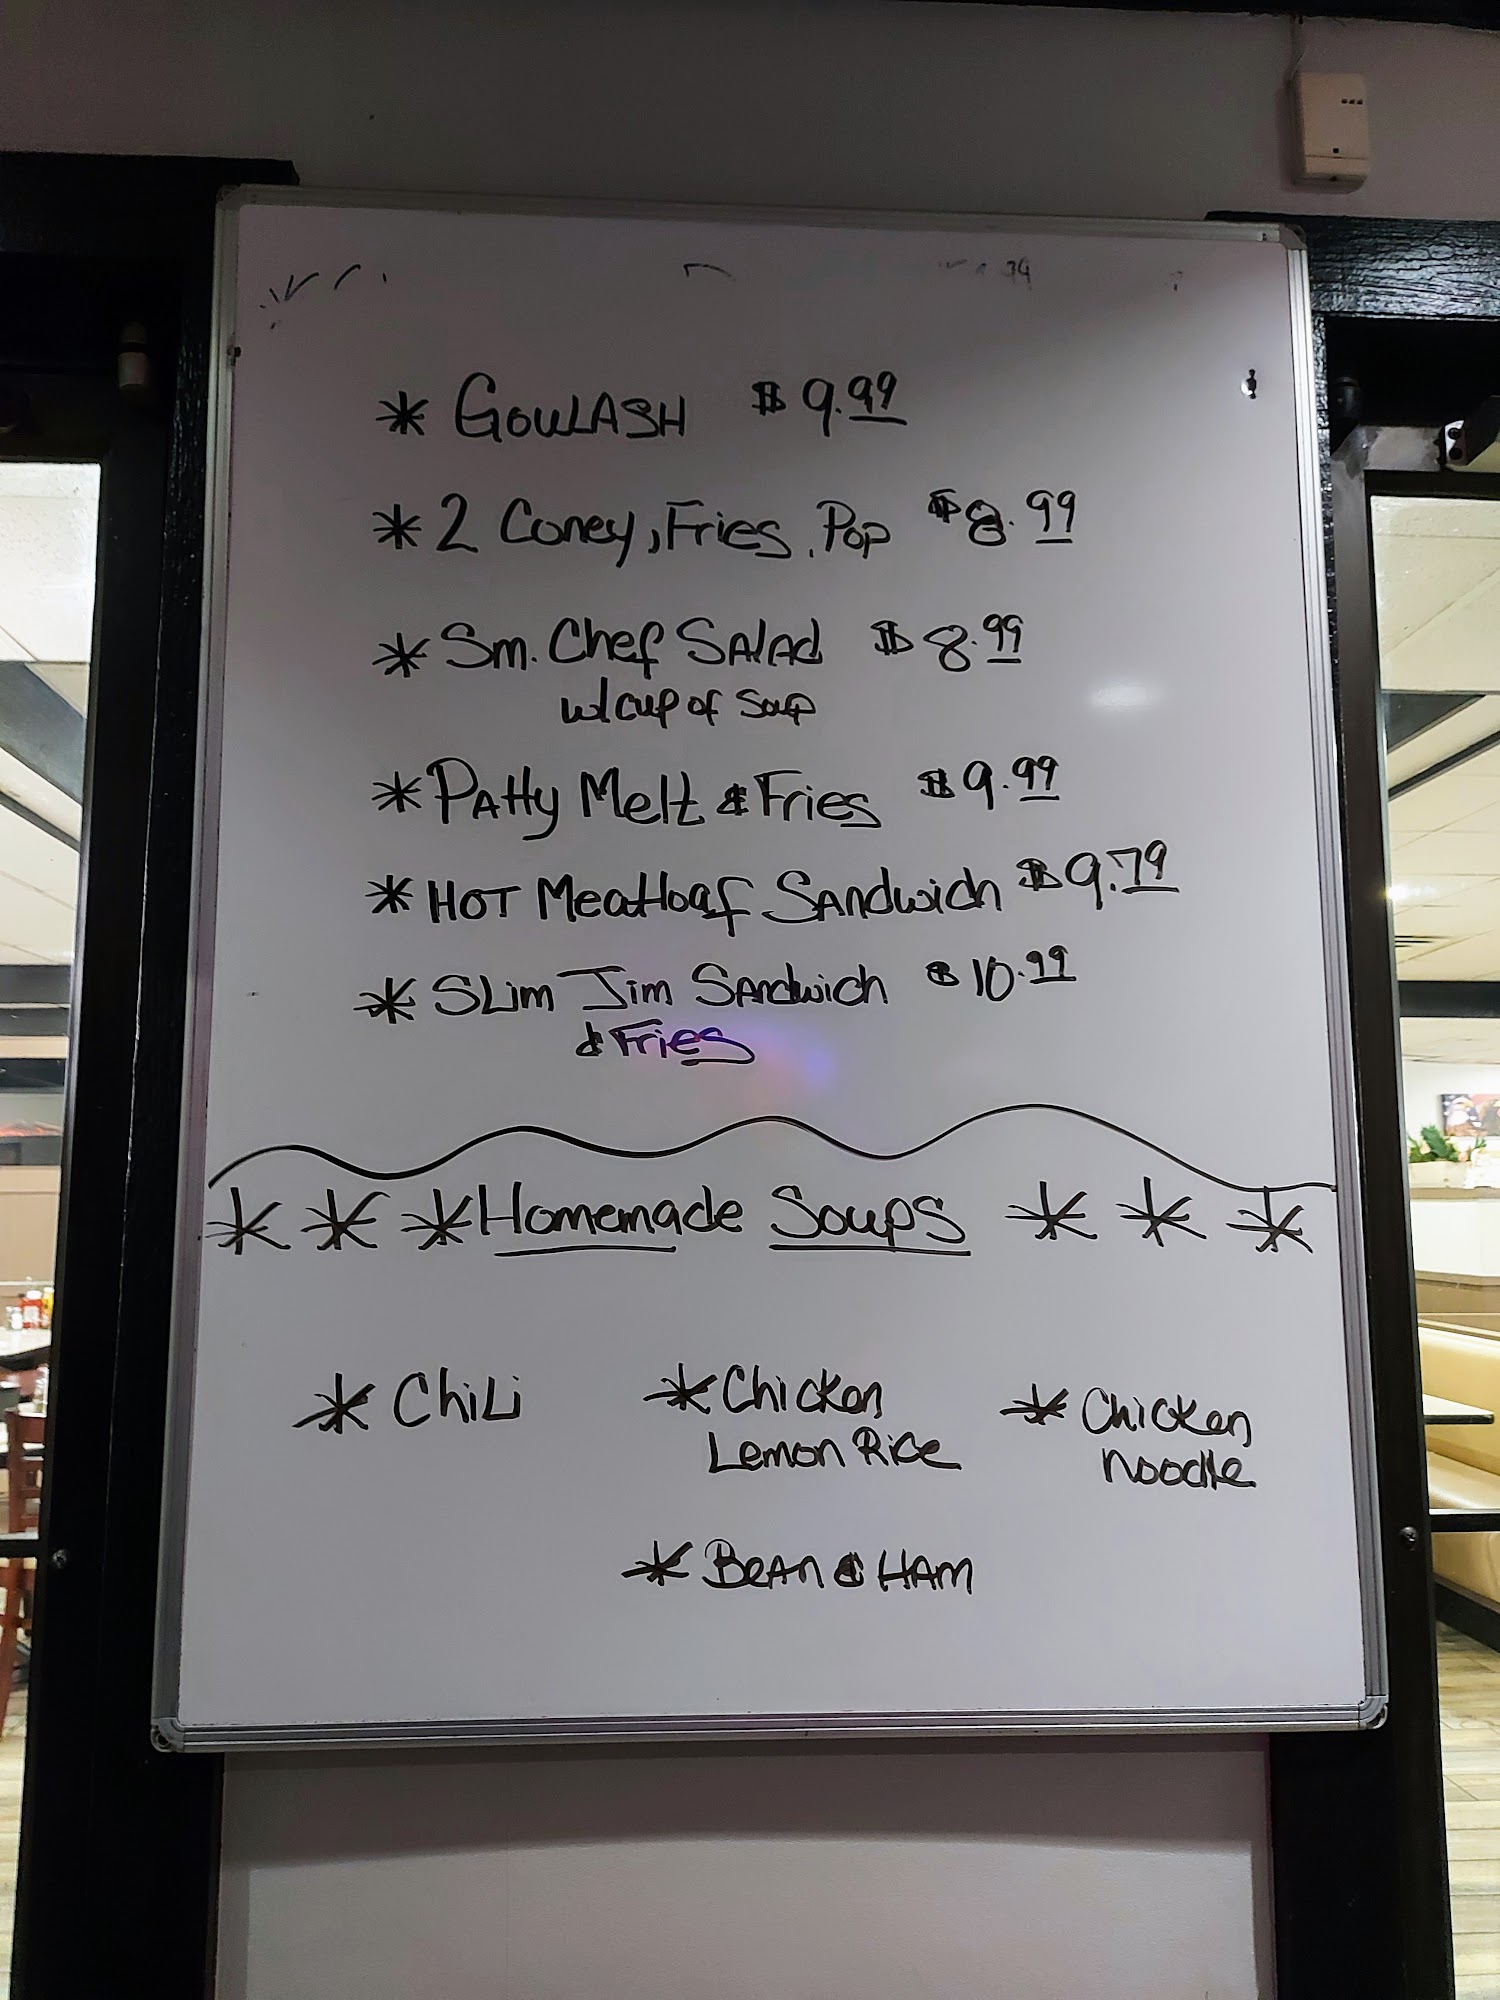 * GOULASH $ 9.99
* 2 Coney, Fries, Pop $8.99
* Sm. Chef Salad $ 8.99
w/ cup of Soup
* Patty Melt & Fries $9.99
* HOT Meatloaf Sandwich $9.79
* Slim Jim Sandwich $10.99
& Fries
* * * Homemade Soups * * *
* Chili
* Chicken
Lemon Rice
* Chicken
Noodle
* Bean & Ham